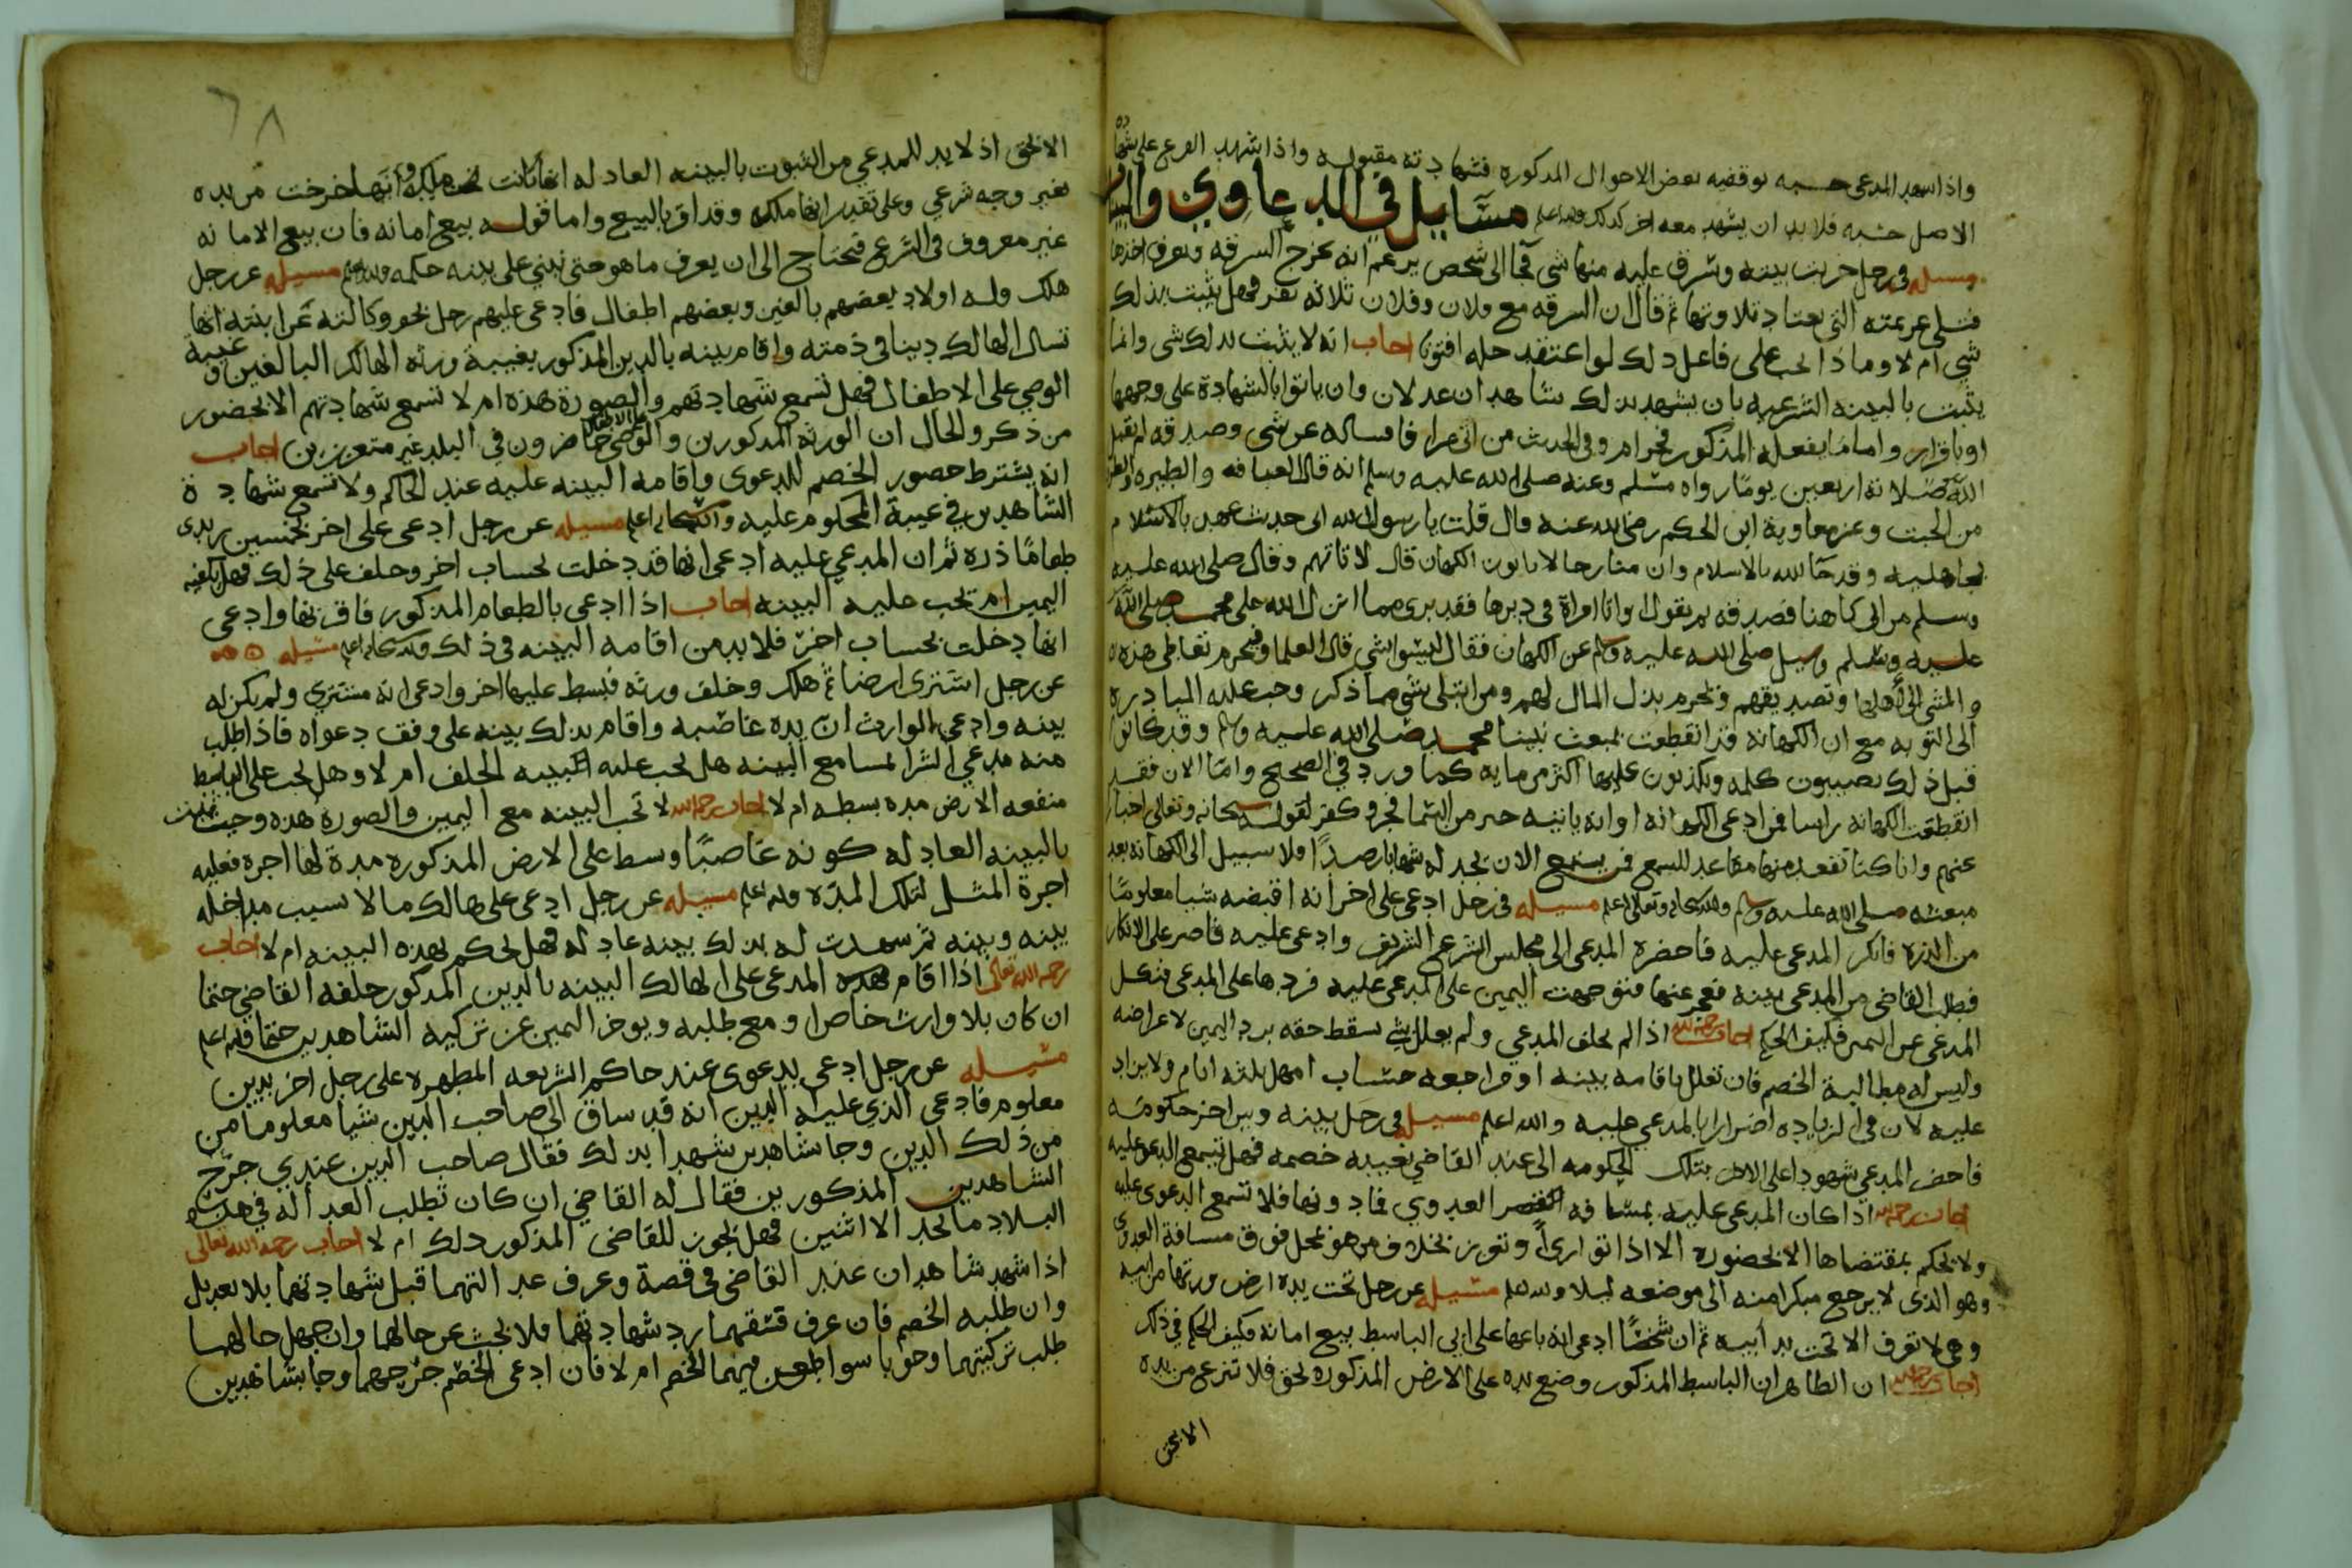 واذا اسهد المدعى حسبه توقفيه بعض الاحوال المذكوره فشهادته مقبوله واذا شهد الفرع على شهادة
الاصل حسبه فلا بد ان يشهد معه اخر كذلك والله اعلم مسايل في الدعاوي والبينات
مسيله في رجل خربت بيته وسرق عليه منها شي فجا الى شخص يزعم انه يخرج السرقه ويعرف اخذها
فتلى عزيمته التي يعتاد تلاوتها ثم قال ان السرقه مع فلان وفلان ثلاثه نفر فهل يثبت بذلك
شي ام لا وماذا يجب على فاعل ذلك لو اعتقد حله افتونا اجاب انه لا يثبت بذلك شي وانما
يثبت بالبينه الشرعيه بان يشهد بذلك شاهدان عدلان وان ياتوا بالشهادة على وجهها
او باقرار واما ما يفعله المذكور فحرام وفي الحديث من اتى عرافا فساله عن شي وصدقه لم يقبل
الله صلاته اربعين يوما رواه مسلم وعنه صلى الله عليه وسلم انه قال العيافه والطيره والطرق
من الجبت وعن معاوية ابن الحكم رضي الله عنه قال قلت يا رسول الله اني حديث عهد بالاسلام
بجاهليه وقد جا الله بالاسلام وان منا رجالا ياتون الكهان قال لا تاتهم وقال صلى الله عليه
وسلم من اتى كاهنا فصدقه بم يقول او اتا امراة في دبرها فقد برى مما انزل الله على محمد صلى الله
عليه وسلم وسيل صلى الله عليه وسلم عن الكهان فقال ليسوا بشي قال العلما ويحرم تعاطي هذه
والمشي الى اهلها وتصديقهم ويحرم بذل المال لهم ومن ابتلى بشي مما ذكر وجب عليه المبادره
الى التوبه مع ان الكهانه قد انقطعت بمبعث نبينا محمد صلى الله عليه وسلم وقد كانوا
قبل ذلك يصيبون كلمه ويكذبون عليها اكثر من مايه كما ورد في الصحيح واما الان فقد
انقطعت الكهانه راسا فمن ادعى الكهانه او انه ياتيه خبر من السما فجر وكفر لقوله سبحانه وتعالى اخبارا
عنهم وانا كنا نقعد منها مقاعد للسمع فمن يستمع الان يجد له شهابا رصدا ولا سبيل الى الكهانه بعد
مبعثه صلى الله عليه وسلم والله سبحانه وتعالى اعلم مسيله في رجل ادعى على اخر انه اقبضه شيا معلوما
من الذره فانكر المدعى عليه فاحضره المدعى الى مجلس الشرع الشريف وادعى عليه فاصر على الانكار
فطلب القاضي من المدعى بينه فعجز عنها فتوجهت اليمين على المدعى عليه فردها على المدعى فنكل
المدعى عن اليمين فكيف الحكم اجاب رحمه الله اذا لم يحلف المدعي ولم يعلل بشي سقط حقه برد اليمين لاعراضه
وليس له مطالبة الخصم فان تعلل باقامه بينه او مراجعه حساب امهل ثلثه ايام ولا يزاد
عليه لان في الزياده اضرارا بالمدعى عليه والله اعلم مسيله في رجل بينه وبين اخر حكومه
فاحضر المدعي شهودا على الاخر بتلك الحكومه الى عند القاضي بغيبه خصمه فهل تسمع الدعوى عليه
اجاب رحمه الله اذا كان المدعى عليه بمسافه العدوي فما دونها فلا تسمع الدعوى عليه
ولا يحكم بمقتضاها الا بحضوره الا اذا توارى او تعزز بخلاف من هو بمحل فوق مسافة العدوى
وهو الذي لا يرجع مبكرا منه الى موضعه ليلا والله اعلم مسيله عن رجل تحت يده ارض ورثها من ابيه
وهي لا تعرف الا تحت يد ابيه ثم ان شخصا ادعى انه باعها على ابي الباسط بيع امانه فكيف الحكم في ذلك
اجاب رحمه الله ان الظاهر ان الباسط المذكور وضع يده على الارض المذكوره بحق فلا تنزع من يده
الا بحق
٦٨
الا بحق اذ لا بد للمدعي من الثبوت بالبينه العادله انها كانت ملكه وانها خرجت من يده
بغير وجه شرعي وعلى تقدير انها ملكه وقد اقر بالبيع واما قوله بيع امانه فان بيع الامانه
غير معروف في الشرع فتحتاج الى ان يعرف ما هو حتى نبني على بينه حكمه والله اعلم مسيله عن رجل
هلك وله اولاد بعضهم بالغين وبعضهم اطفال فادعى عليهم رجل بحق وكالته عن ابنته انها
تسال الهالك دينا في ذمته واقام بينه بالدين المذكور بغيبة ورثه الهالك البالغين وغيبة
الوصي على الاطفال فهل تسمع شهادتهم والصورة هذه ام لا تسمع شهادتهم الا بحضور
من ذكر والحال ان الورثه المذكورين والوصي على الاطفال حاضرون في البلد غير متعززين اجاب
انه يشترط حضور الخصم للدعوى واقامه البينه عليه عند الحاكم ولا تسمع شهادة
الشاهدين في غيبة المحكوم عليه والله سبحانه اعلم مسيله عن رجل ادعى على اخر بخمسين زبدى
طعاما ذره ثم ان المدعي عليه ادعى انها قد دخلت لحساب اخر وحلف على ذلك فهل يكفيه
اليمين ام تجب عليه البينه اجاب اذا ادعى بالطعام المذكور فاقر بها وادعى
انها دخلت بحساب اخر فلا بد من اقامه البينه في ذلك والله سبحانه اعلم مسيله
عن رجل اشترى ارضا ثم هلك وخلف ورثه فبسط عليها اخر وادعى انه مشتري ولم يكن له
بينه وادعى الوارث ان يده غاصبه واقام بذلك بينه على وفق دعواه فاذا طلب
منه مدعي الشرا لمسا مع البينه هل يجب عليه الحلف ام لا وهل يجب على الباسط
منفعه الارض مده بسطه ام لا اجاب رحمه الله لا تجب البينه مع اليمين والصورة هذه وحيث ثبت
بالبينه العادله كونه غاصبا وبسط على الارض المذكوره مدة لها اجره فعليه
اجرة المثل لتلك المده والله اعلم مسيله عن رجل ادعى على هالك مالا بسبب مداخله
بينه وبينه ثم شهدت له بذلك بينه عادله فهل يحكم بهذه البينه ام لا اجاب
رحمه الله تعالى اذا اقام المدعي على الهالك البينه بالدين المذكور حلفه القاضي حتما
ان كان بلا وارث خاص او مع طلبه ويوخر اليمين عن تزكيه الشاهدين حتما والله اعلم
مسيله عن رجل ادعى بدعوى عند حاكم الشريعه المطهره على رجل اخر بدين
معلوم فادعى الذي عليه الدين انه قد ساق الى صاحب الدين شيا معلوما من
من ذلك الدين وجا شاهدين شهدا بذلك فقال صاحب الدين عندي جرح
الشاهدين المذكورين فقال له القاضي ان كان تطلب العداله في هذه
البلاد ما نجد الا اثنين فهل يجوز للقاضي المذكور ذلك ام لا اجاب رحمه الله تعالى
اذا شهد شاهدان عند القاضي في قصة وعرف عدالتهما قبل شهادتهما بلا تعديل
وان طلبه الخصم فان عرف فسقهما رد شهادتهما ولا يبحث عن حالهما وان جهل حالهما
طلب تزكيتهما وجوبا سوا طعن فيهما الخصم ام لا فان ادعى الخصم جرحهما وجا بشاهدين